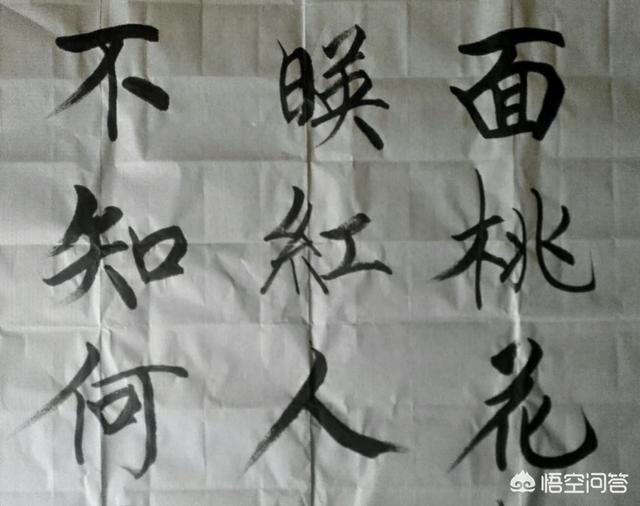 面桃花
暎紅人
不知何
悟空问答